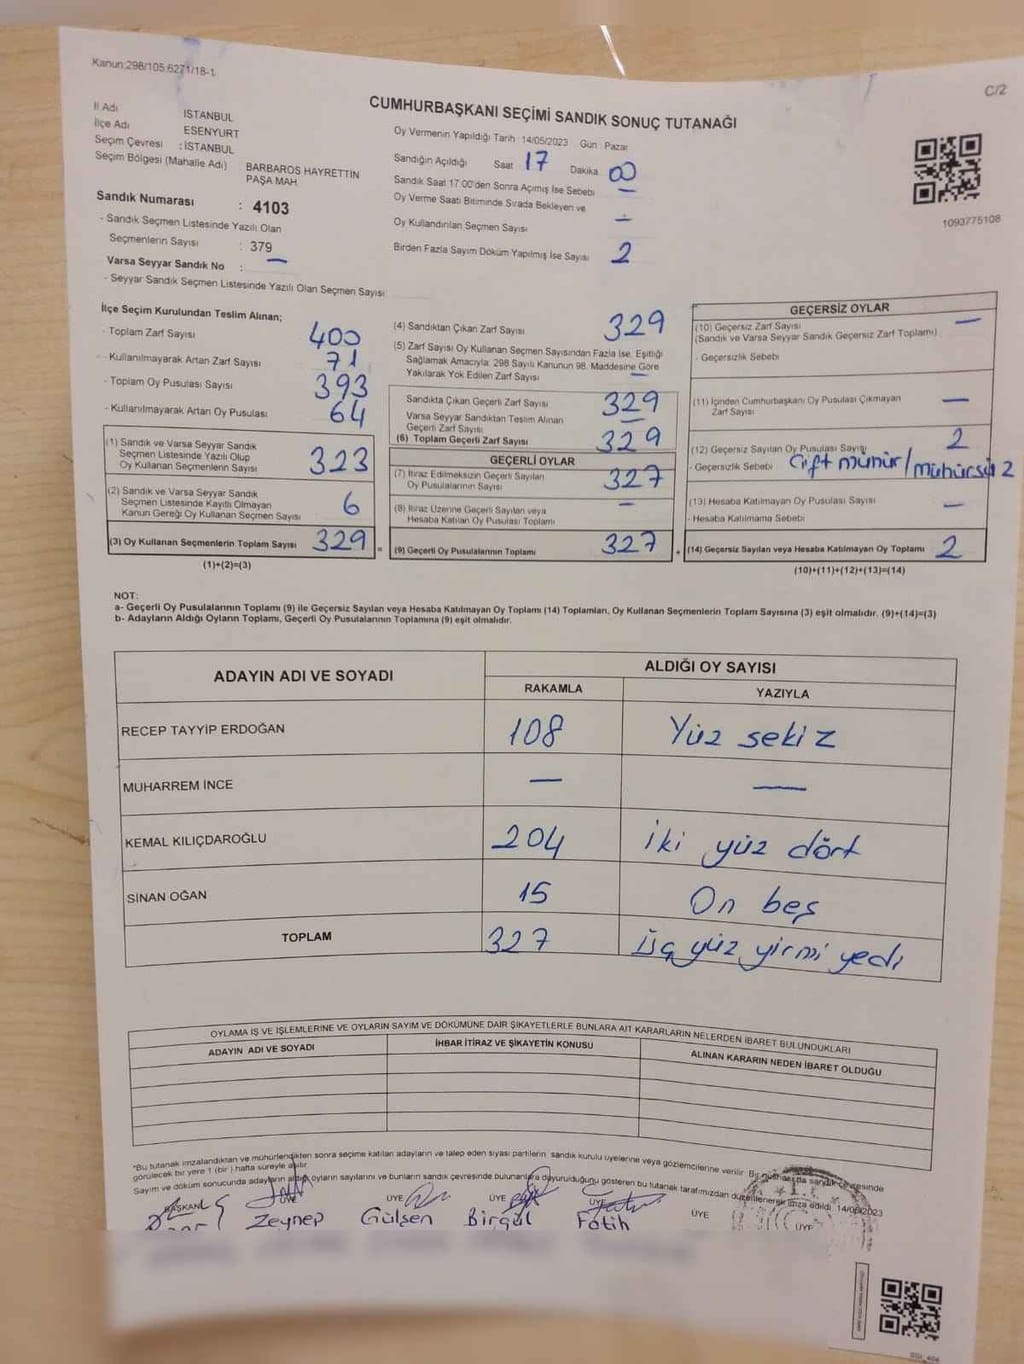 Kanun:298/105.6271/18-1
C/2
CUMHURBAŞKANI SEÇİMİ SANDIK SONUÇ TUTANAĞI
İl Adı İSTANBUL
İlçe Adı ESENYURT
Seçim Çevresi : İSTANBUL
Seçim Bölgesi (Mahalle Adı) BARBAROS HAYRETTİN
PAŞA MAH.
Sandık Numarası : 4103
- Sandık Seçmen Listesinde Yazılı Olan
Seçmenlerin Sayısı : 379
Varsa Seyyar Sandık No : —
- Seyyar Sandık Seçmen Listesinde Yazılı Olan Seçmen Sayısı
Oy Vermenin Yapıldığı Tarih : 14/05/2023 Gün : Pazar
Sandığın Açıldığı Saat 17 Dakika 00
Sandık Saat 17:00'den Sonra Açımış İse Sebebi —
Oy Verme Saati Bitiminde Sırada Bekleyen ve
Oy Kullandırılan Seçmen Sayısı —
Birden Fazla Sayım Döküm Yapılmış İse Sayısı 2
1093775108
İlçe Seçim Kurulundan Teslim Alınan;
- Toplam Zarf Sayısı 400
- Kullanılmayarak Artan Zarf Sayısı 71
- Toplam Oy Pusulası Sayısı 393
- Kullanılmayarak Artan Oy Pusulası 64
(1) Sandık ve Varsa Seyyar Sandık
Seçmen Listesinde Yazılı Olup
Oy Kullanan Seçmenlerin Sayısı 323
(2) Sandık ve Varsa Seyyar Sandık
Seçmen Listesinde Kayıtlı Olmayan
Kanun Gereği Oy Kullanan Seçmen Sayısı 6
(3) Oy Kullanan Seçmenlerin Toplam Sayısı 329 =
(1)+(2)=(3)
(4) Sandıktan Çıkan Zarf Sayısı 329
(5) Zarf Sayısı Oy Kullanan Seçmen Sayısından Fazla İse, Eşitliği
Sağlamak Amacıyla; 298 Sayılı Kanunun 98. Maddesine Göre
Yakılarak Yok Edilen Zarf Sayısı —
Sandıkta Çıkan Geçerli Zarf Sayısı 329
Varsa Seyyar Sandıktan Teslim Alınan
Geçerli Zarf Sayısı —
(6) Toplam Geçerli Zarf Sayısı 329
GEÇERLİ OYLAR
(7) İtiraz Edilmeksizin Geçerli Sayılan
Oy Pusulalarının Sayısı 327
(8) İtiraz Üzerine Geçerli Sayılan veya
Hesaba Katılan Oy Pusulası Toplamı —
(9) Geçerli Oy Pusulalarının Toplamı 327 +
GEÇERSİZ OYLAR
(10) Geçersiz Zarf Sayısı —
(Sandık ve Varsa Seyyar Sandık Geçersiz Zarf Toplamı)
- Geçersizlik Sebebi
(11) İçinden Cumhurbaşkanı Oy Pusulası Çıkmayan
Zarf Sayısı —
(12) Geçersiz Sayılan Oy Pusulası Sayısı 2
- Geçersizlik Sebebi Çift mühür/mühürsüz 2
(13) Hesaba Katılmayan Oy Pusulası Sayısı —
- Hesaba Katılmama Sebebi
(14) Geçersiz Sayılan veya Hesaba Katılmayan Oy Toplamı 2
(10)+(11)+(12)+(13)=(14)
NOT:
a- Geçerli Oy Pusulalarının Toplamı (9) ile Geçersiz Sayılan veya Hesaba Katılmayan Oy Toplamı (14) Toplamları, Oy Kullanan Seçmenlerin Toplam Sayısına (3) eşit olmalıdır. (9)+(14)=(3)
b- Adayların Aldığı Oyların Toplamı, Geçerli Oy Pusulalarının Toplamına (9) eşit olmalıdır.
ADAYIN ADI VE SOYADI ALDIĞI OY SAYISI
RAKAMLA YAZIYLA
RECEP TAYYİP ERDOĞAN 108 Yüz sekiz
MUHARREM İNCE — —
KEMAL KILIÇDAROĞLU 204 iki yüz dört
SİNAN OĞAN 15 On beş
TOPLAM 327 üç yüz yirmi yedi
OYLAMA İŞ VE İŞLEMLERİNE VE OYLARIN SAYIM VE DÖKÜMÜNE DAİR ŞİKAYETLERLE BUNLARA AİT KARARLARIN NELERDEN İBARET BULUNDUKLARI
ADAYIN ADI VE SOYADI İHBAR İTİRAZ VE ŞİKAYETİN KONUSU ALINAN KARARIN NEDEN İBARET OLDUĞU
*Bu tutanak imzalandıktan ve mühürlendikten sonra seçime katılan adayların ve talep eden siyasi partilerin sandık kurulu üyelerine veya gözlemcilerine verilir. Bir nüshası da sandık çevresinde
görülecek bir yere 1 (bir) hafta süreyle asılır.
Sayım ve döküm sonucunda adayların aldığı oyların sayılarını ve bunların sandık çevresinde bulunanlara duyurulduğunu gösteren bu tutanak tarafımızdan düzenlenerek imza edildi. 14/05/2023
BAŞKAN ÜYE ÜYE ÜYE ÜYE ÜYE ÜYE
Zeynep Gülşen Birgül Fatih